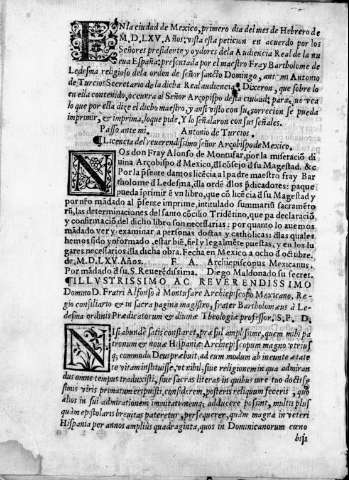 EN la ciudad de Mexico, primero dia del mes de Hebrero de
M,D,LXV, Años, vista esta peticion en acuerdo por los
Señores presidente y oydores dela Audiencia Real de la nu
eua España; presentada por el maestro Fray Bartholome de
Ledesma religioso dela orden de señor sancto Domingo, ante mi Antonio
de Turcios Secretario de la dicha Real audiencia, Dixeron, que sobre lo
en ella contenido, occurra al Señor Arçobispo desta ciudad; para, que vea
lo que por ella dize el dicho maestro, y ansi visto con su, correcion se pueda
imprimir, e imprima, lo que pide, Y lo señalaron con sus señales.
Passo ante mi, Antonio de Turcios.
¶ Licencia del reuerendissimo señor Arçobispo de Mexico.
NOs don Fray Alonso de Montufar, por la miseraciõ di
uina Arçobispo d Mexico, del cõsejo d su Magestad. &c.
Por la p̃sente damos licẽcia al padre maestro fray Bar
tholome d Ledesma, dla ordẽ dlos p̃dicadores: paque
pueda ĩprimir ẽ vn libro, que cõ licẽcia d su Magestad y
por nr̃o mãdado al p̃sente imprime, intitulado summariũ sacramẽto
rũ, las determinaciones del sanɔ cõcisio Tridẽtino, que pa declaraciõ
y confirmaciõ del dicho libro son necessarias: por quanto lo auemos
mãdado ver y examinar a personas doctas y catholicas dlas quales
hemos sido ynformado, estar biẽ, fiel y legalmẽte puestas, y en los lu
gares necessarios dla dicha obra. Fecha en Mexico a ocho d octubre.
de M,D,LXV. Años. F. A. Archiepiscopus Mexicanus,
Por mãdado d su S. Reuerẽdissima. Diego Maldonado su secret.
¶ ILLVSTRISSIMO AC REVERENDISSIMO
Domino D. Fratri Alfonso à Montufare Archiepiscopo Mexicano, Re
gio consiliario & in sacra pagina magistro, frater Bartholomæus à Le
desma ordinis Prædicatorum & diuinæ Theologiæ professor, S, P, D,
NIsi abundè satis constaret, præsul amplissime, quem mihi pa
tronum & nouæ Hispaniæ Archiepiscopum magno vtrius
q; commodo Deus præbuit, ad eum modum ab ineunte ætate
te vitam instituisse, vt nihil, siue religionem in qua admiran
dus omne tempus traduxisti, siue sacras literas in quibus iure tuo doctissi
simis viris primatum eripuisti, considerem, posteris reliquum feceris; quo
alios in sui admirationem inuitationemq; adducere possint, multis plus
quàm epistolaris breuitas pateretur, persequerer, quàm magna in veteri
Hispania per annos ampliùs quadraginta, quos in Dominicanorum cœno
bijs